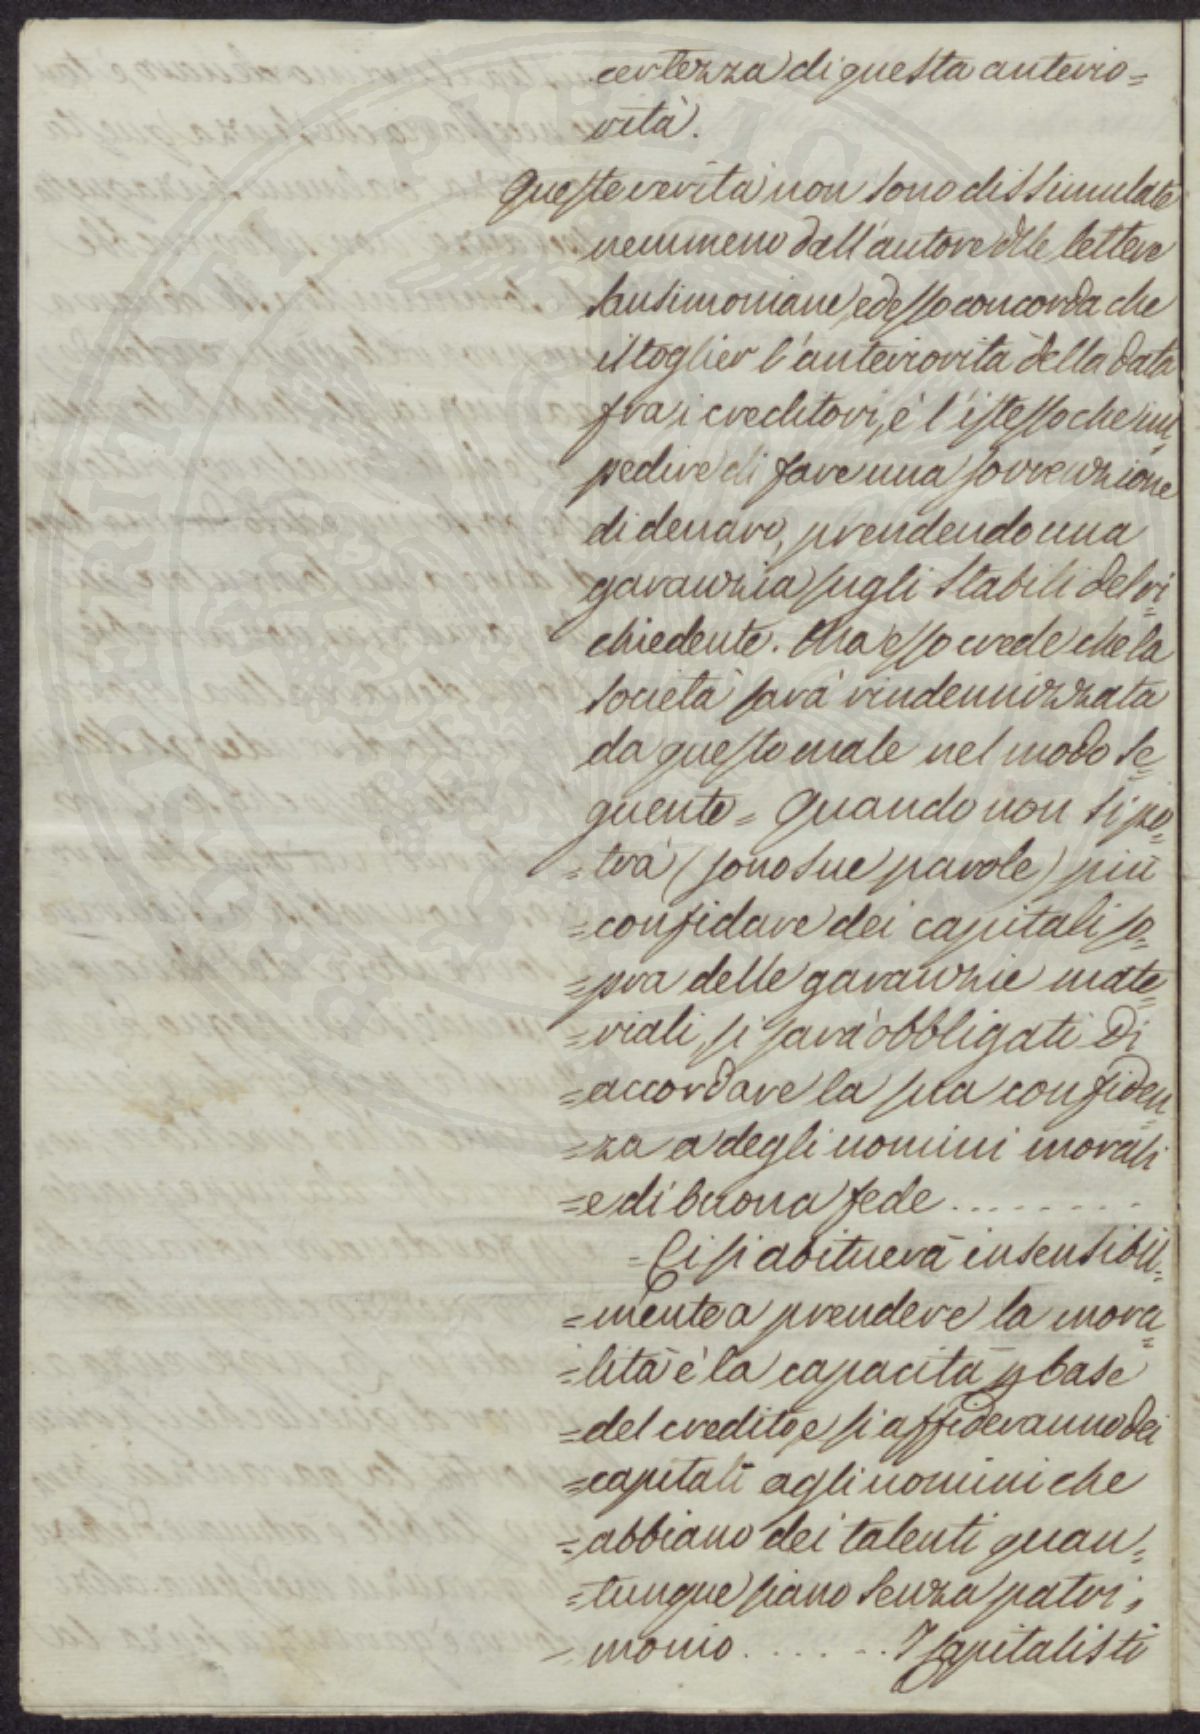 certezza di questa anterio=
rità.
Queste verità non sono dissimulate
nemmeno dall'autore delle lettere
sansimoniane, ed esso concorda che
il toglier l'anteriorità della data
fra i creditori, è l'istesso che im=
pedire di fare una sovvenzione
di denaro, prendendo una
garanzia sugli stabili del ri=
chiedente. Ma esso crede che la
società sarà rindennizzata
da questo male nel modo se=
guente = Quando non si po=
=trà (sono sue parole) più
=confidare dei capitali so=
=pra delle garanzie mate=
=riali, si sarà obbligati di
=accordare la sua confiden=
=za a degli uomini morali
=e di buona fede ........
=Ci si abituerà insensibil=
=mente a prendere la mora=
=lità è la capacità p base
=del credito, e si affideranno dei
=capitali agli uomini che
=abbiano dei talenti quan=
=tunque siano senza patri=
= monio ...... I capitalisti